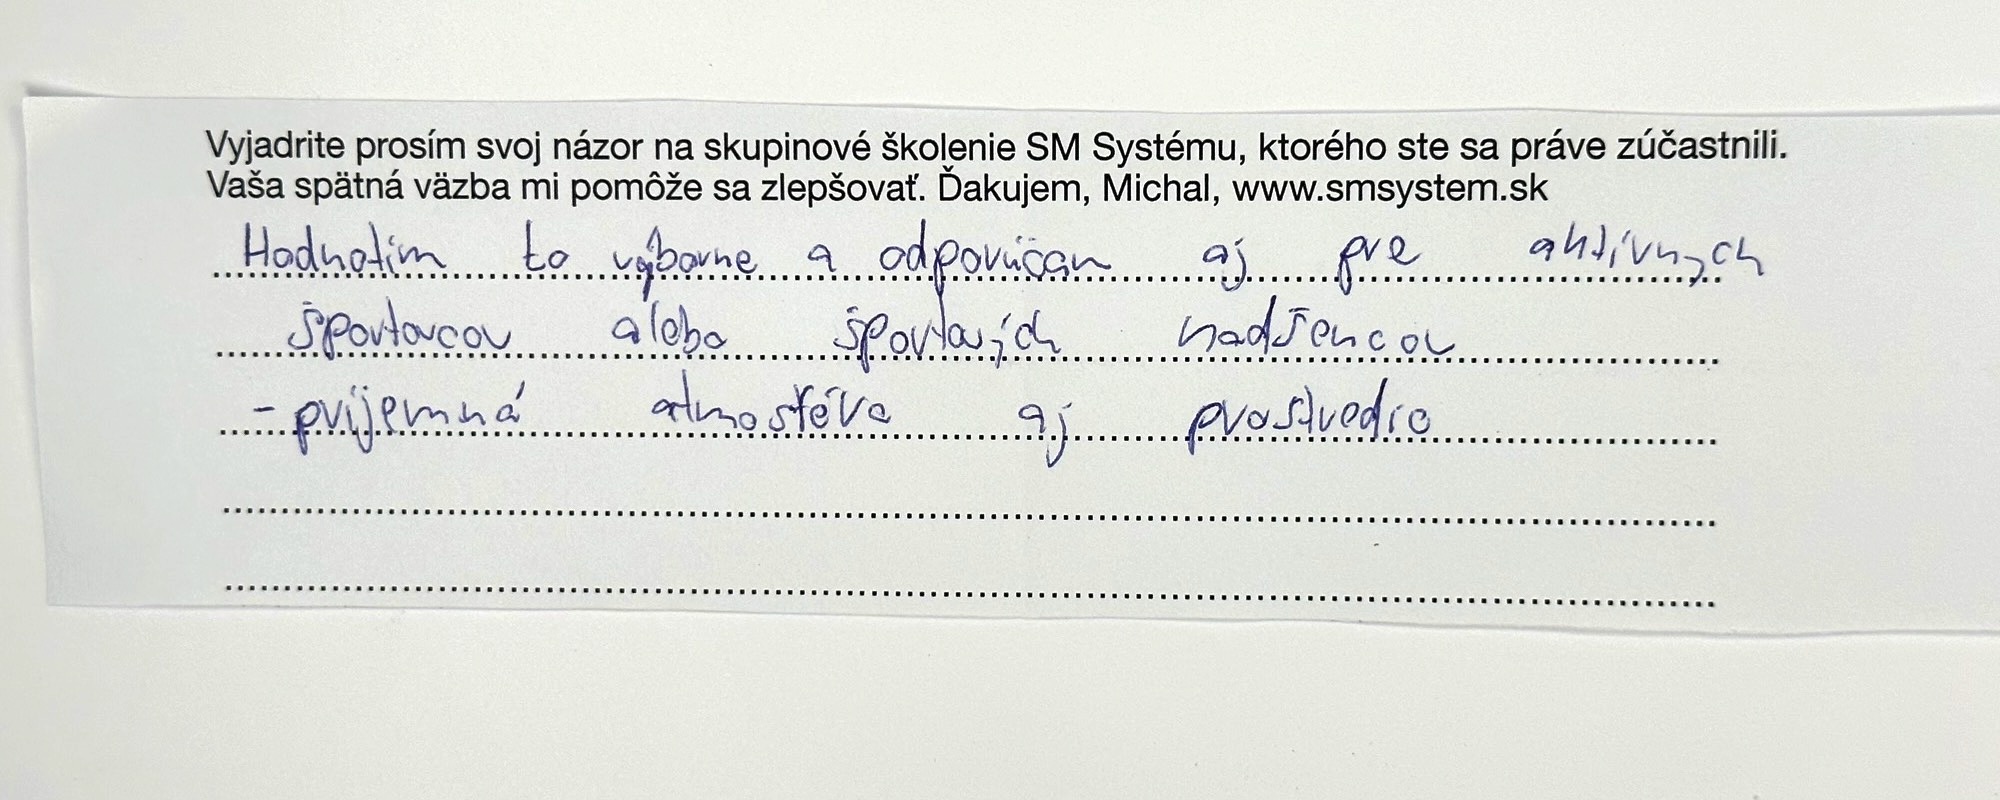 Vyjadrite prosím svoj názor na skupinové školenie SM Systému, ktorého ste sa práve zúčastnili.
Vaša spätná väzba mi pomôže sa zlepšovať. Ďakujem, Michal, www.smsystem.sk
Hodnotím to výborne a odporúčam aj pre aktívnych
športovcov alebo športových nadšencov
- príjemná atmosféra aj prostredie